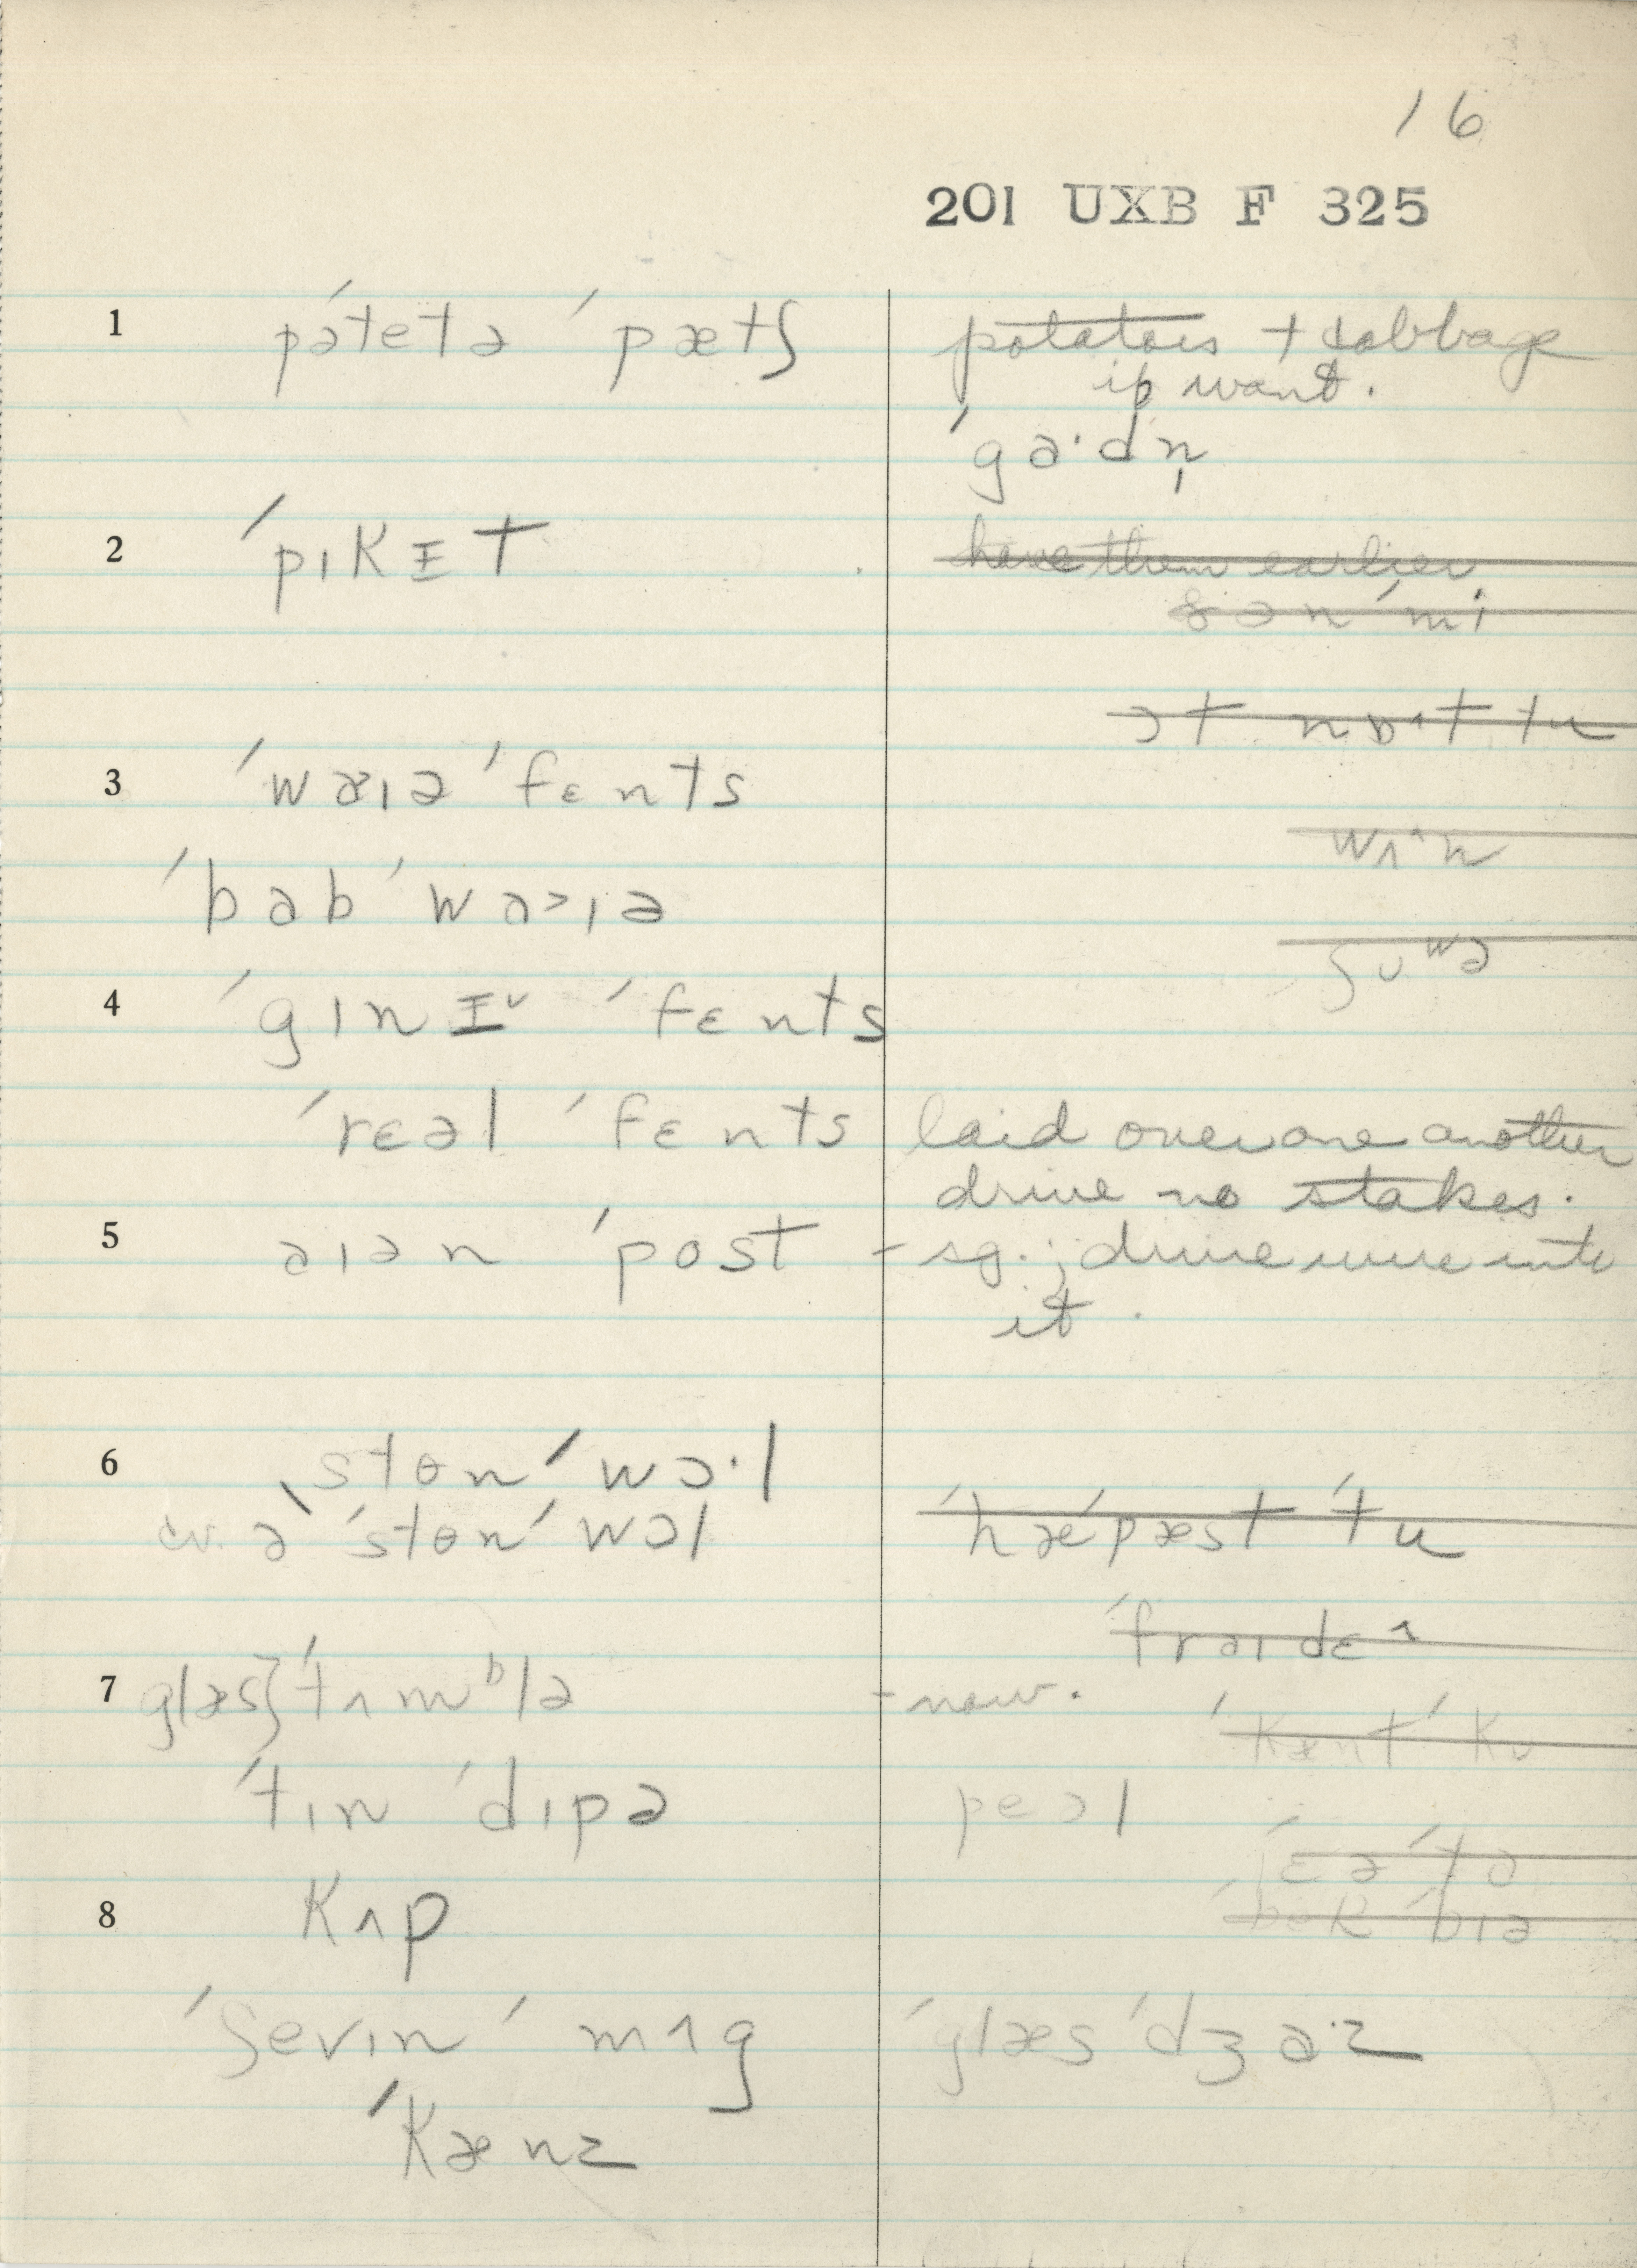 16
201 UXB F 325
1 pəˈtetə ˈpætʃ potatoes + cabbage
if want.
ˈga·dn̩
2 ˈpɪkɪt have them earlier
ˈmi
ɔt nɒ˄t tu
3 ˈwæɪə ˈfɛnts
wʌ˄n
ˈbabˈwa˃ɪə
ʃʊʷə
4 ˈgɪnɪ˅ ˈfɛnts
ˈrɛəl ˈfɛnts laid over one another
drive no stakes.
5 aɪən ˈpost - sg.; drive wire into
it.
6 ˌstɵnˈwɔ·l
cv. ə ˈstɵnˈwɔl ˈhæˈpæst ˈtu
ˈfraɪdɛ˄
7 glæs} ˈtʌmᵇlə - now.
ˈkæntˈkʊ
ˈtɪn ˈdɪpə peəl
8 kʌp
ˈʃevɪn ˈmʌg ˈglæs ˈdʒa·z
ˈkænz